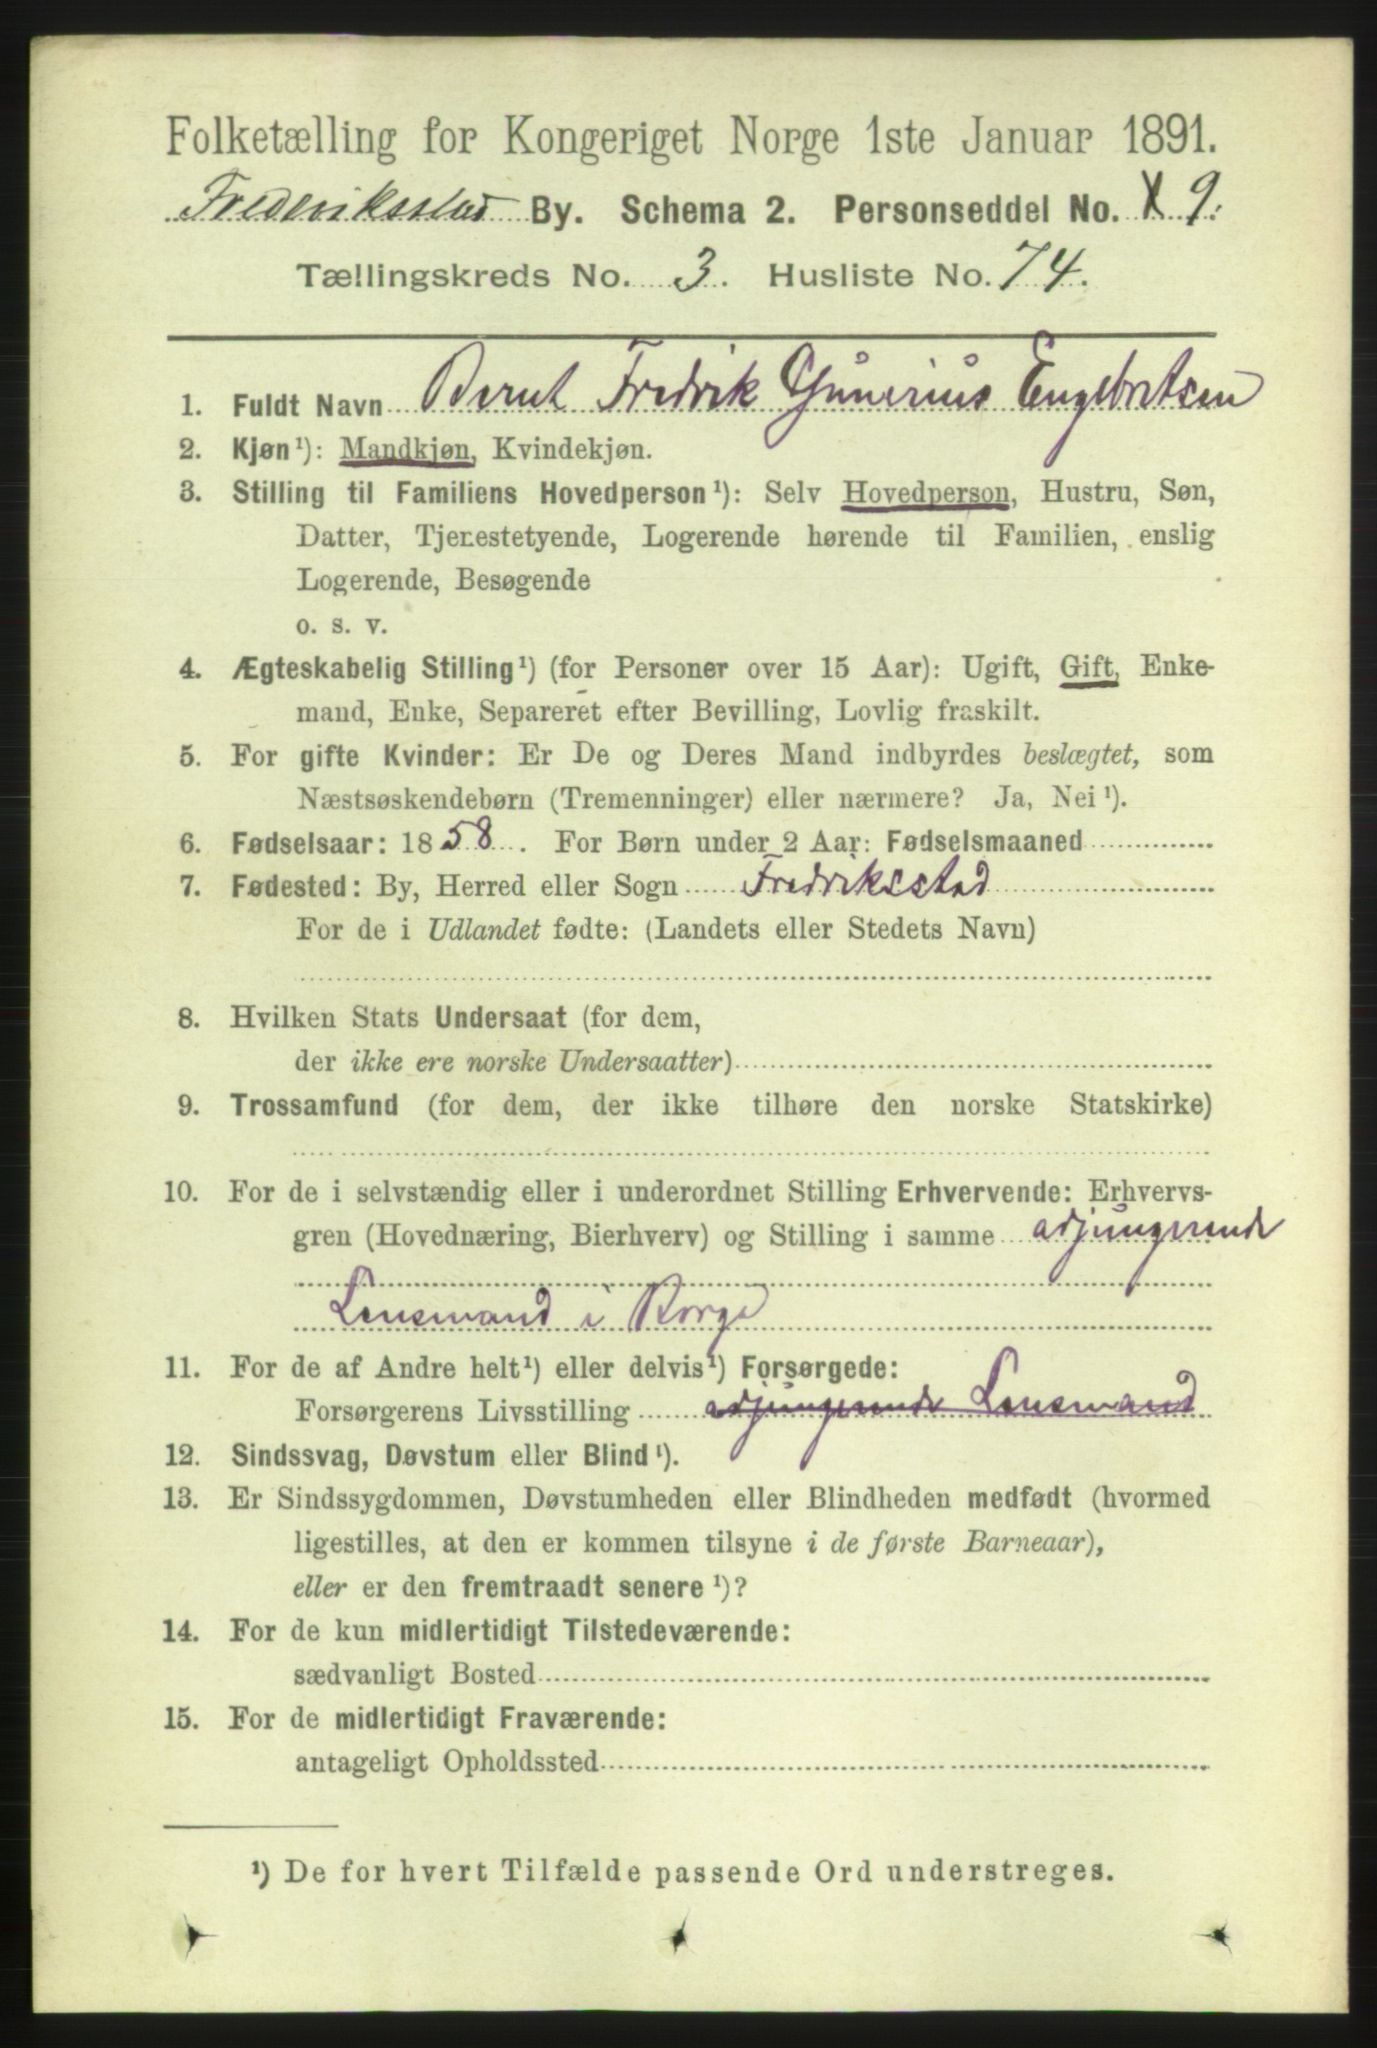 Folketælling for Kongeriget Norge 1ste Januar 1891.
Frederiksstad By. Schema 2. Personseddel No. 9.
Tællingskreds No. 3. Husliste No. 74.
1. Fuldt Navn Bernt Fredrik Gunerius Engebretsen
2. Kjøn¹): Mandkjøn, Kvindekjøn.
3. Stilling til Familiens Hovedperson¹): Selv Hovedperson, Hustru, Søn,
Datter, Tjenestetyende, Logerende hørende til Familien, enslig
Logerende, Besøgende
o. s. v.
4. Ægteskabelig Stilling¹) (for Personer over 15 Aar): Ugift, Gift, Enke-
mand, Enke, Separeret efter Bevilling, Lovlig fraskilt.
5. For gifte Kvinder: Er De og Deres Mand indbyrdes beslægtet, som
Næstsøskendebørn (Tremenninger) eller nærmere? Ja, Nei¹).
6. Fødselsaar: 1858. For Børn under 2 Aar: Fødselsmaaned
7. Fødested: By, Herred eller Sogn Fredriksstad
For de i Udlandet fødte: (Landets eller Stedets Navn)
8. Hvilken Stats Undersaat (for dem,
der ikke ere norske Undersaatter)
9. Trossamfund (for dem, der ikke tilhøre den norske Statskirke)
10. For de i selvstændig eller i underordnet Stilling Erhvervende: Erhvervs-
gren (Hovednæring, Bierhverv) og Stilling i samme adjungerende
Lensmand i Borge
11. For de af Andre helt¹) eller delvis¹) Forsørgede:
Forsørgerens Livsstilling adjungerende Lensmand
12. Sindssvag, Døvstum eller Blind¹).
13. Er Sindssygdommen, Døvstumheden eller Blindheden medfødt (hvormed
ligestilles, at den er kommen tilsyne i de første Barneaar),
eller er den fremtraadt senere¹)?
14. For de kun midlertidigt Tilstedeværende:
sædvanligt Bosted
15. For de midlertidigt Fraværende:
antageligt Opholdssted
¹) De for hvert Tilfælde passende Ord understreges.